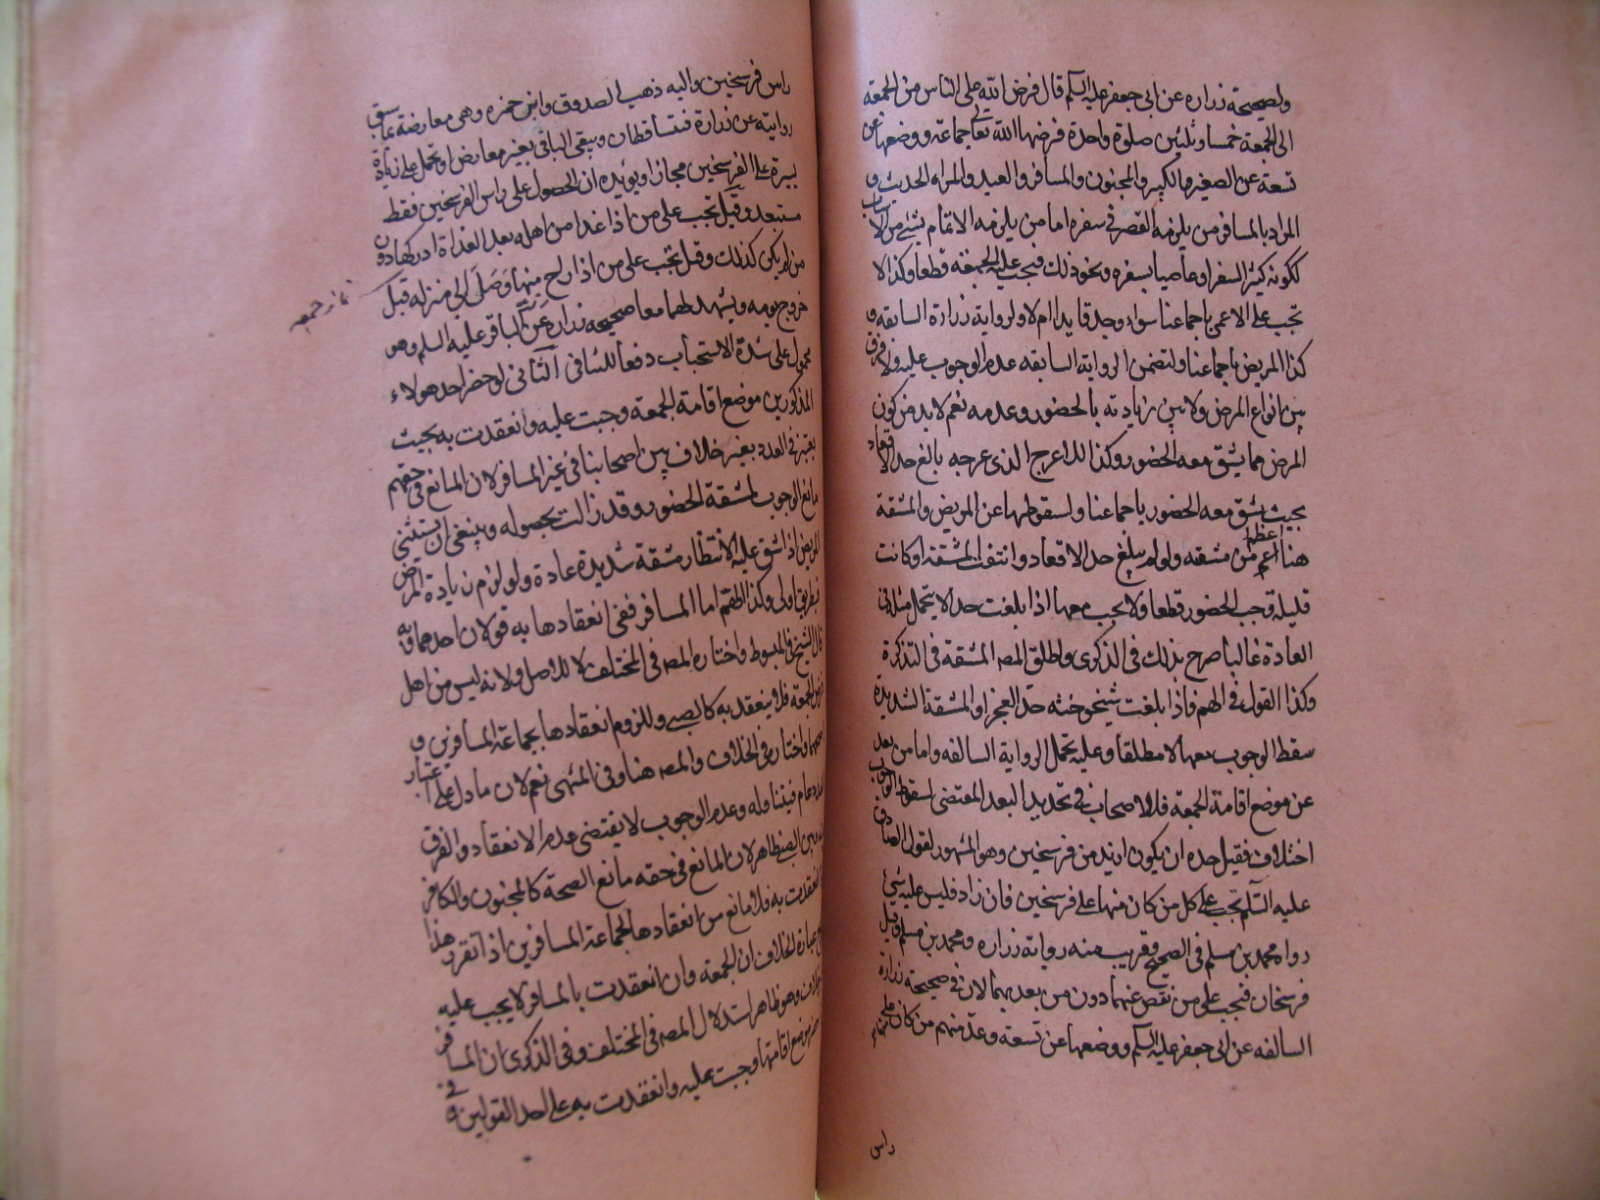 ولصحيحة زراره عن ابى جعفر عليه السلم قال فرض الله على الناس من الجمعة
الى الجمعة خمسا وثلثين صلوة واحدة فرضها الله تعالى جماعة ووضعها عن
تسعة عن الصغير والكبير والمجنون والمسافر والعبد والمراه الحديث و
المراد بالمسافر من يلزمه القصر في سفره اما من يلزمه الاتمام بشئ من الاسباب
ككونه كثير السفر او عاصيا بسفره ونحو ذلك فيجب عليه الجمعة قطعا وكذا لا
تجب على الاعمى باجماعنا سواء وجد قايدا ام لا ولرواية زرارة السابقه و
كذا المريض باجماعنا ولتضمن الرواية السابقه عدم الوجوب عليه ولا فرق
بين انواع المرض ولا بين زيادته بالحضور وعدمه نعم لا بد من كون
المرض مما يشق معه الحضور وكذا الاعرج الذى عرجه بالغ حد الاقعاد
بحيث يشق معه الحضور باجماعنا ولسقوطها عن المريض والمشقة
هنا اعظم من مشقه ولو لم يبلغ حد الاقعاد وانتفت المشقة او كانت
قليلة وجب الحضور قطعا ولا يجب معها اذا بلغت حد الا يتحمل مثله في
العادة غالبا صرح بذلك فى الذكرى واطلق المصـ المشقة فى التذكرة
وكذا القول في الهم فاذا بلغت شيخوخته حد العجز او المشقة الشديدة
سقط الوجوب معها لا مطلقا وعليه تحمل الرواية السالفه واما من بعد
عن موضع اقامة الجمعة فللاصحاب في تحديد البعد المقتضى لسقوط الوجوب
اختلاف فقيل حده ان يكون ازيد من فرسخين وهو المشهور لقول الصادق
عليه السلم تجب على كل من كان منها على فرسخين فان زاد فليس عليه شئ
رواه محمد بن مسلم فى الصحيح وقريب منه رواية زراره ومحمد بن مسلم وقيل
فرسخان فيجب على من نقص عنهما دون من بعد بهما لان في صحيحة زرارة
السالفه عن ابى جعفر عليه السلم ووضعها عن تسعة وعد منهم من كان على
راس
راس فرسخين واليه ذهب الصدوق وابن حمزه وهى معارضة بما سبق
روايته عن زرارة فتتساقطان ويبقى الباقى بغير معارض او تحمل على زيادة
يسيرة على الفرسخين مجازا ويؤيده ان الحصول على راس الفرسخين فقط
مستبعد وقيل تجب على من اذا غدا من اهله بعد الغداة ادركها دون
من لم يكن كذلك وقيل تجب على من اذا راح منها وصل الى منزله قبل
نماز جمعه
خروج يومه ويشهد لهما معا صحيحة زراره عن الباقر عليه السلم وهو
محمول على شدة الاستحباب دفعا للتنافى الثانى لو حضر احد هولاء
المذكورين موضع اقامة الجمعة وجبت عليه وانعقدت به بحيث
يعتبر في العدد بغير خلاف بين اصحابنا فى غير المسافر لان المانع فى حقهم
مانع الوجوب لمشقة الحضور وقد زالت بحصوله وينبغى ان يستثنى
المريض اذا شق عليه الانتظار مشقة شديدة عادة ولو لزم زيادة المرض
فبطريق اولى وكذا الهم اما المسافر ففى انعقادها به قولان احدهما وبه
قال الشيخ فى المبسوط واختاره المصـ فى المختلف لا للاصل ولانه ليس من اهل
فرض الجمعة فلا ينعقد به كالصبى وللزوم انعقادها بجماعة المسافرين و
واختاره فى الخلاف والمصـ هنا وفى المنتهى نعم لان ما دل على اعتبار
العدد عام فيتناوله وعدم الوجوب لا يقتضى عدم الانعقاد والفرق
بين الصبى ظاهر لان المانع فى حقه مانع الصحة كالمجنون والكافر
انعقدت به فلا مانع من انعقادها بجماعة المسافرين اذا تقرر هذا
عبارة الخلاف ان الجمعة وان انعقدت بالمسافر لا يجب عليه
وهو ظاهر استدلال المصـ فى المختلف وفى الذكرى ان المسافر
حضر موضع اقامتها وجبت عليه وانعقدت به على احد القولين وفى